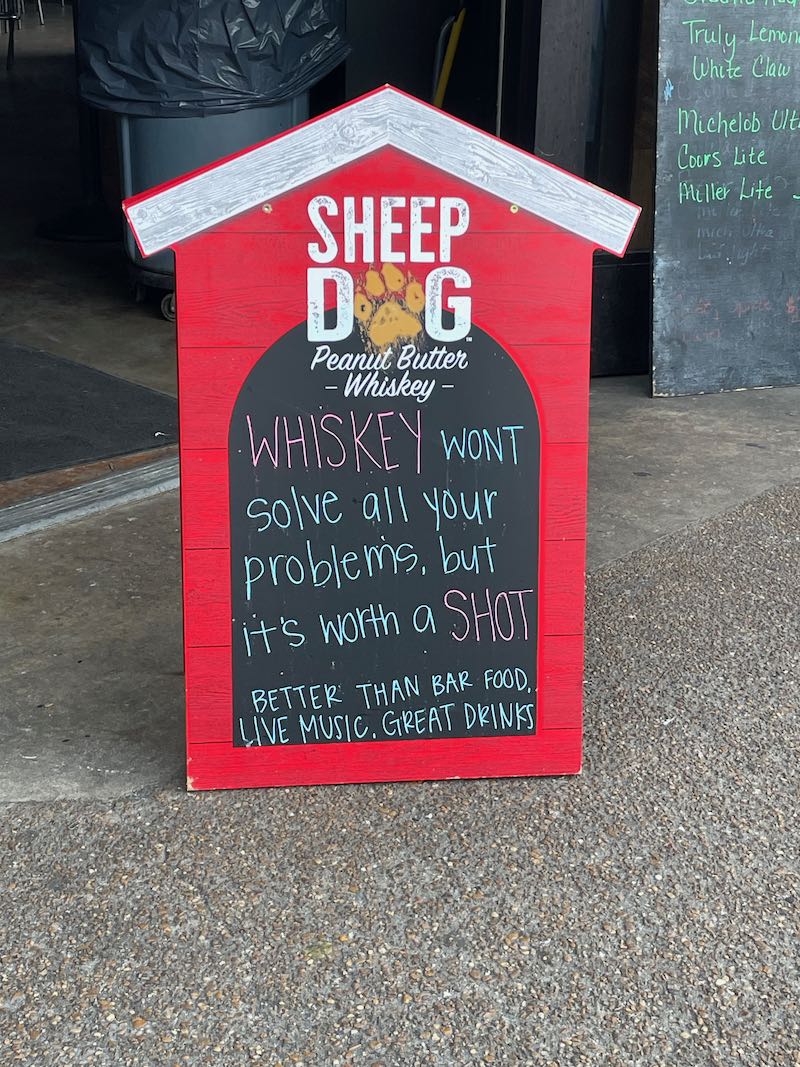 SHEEP
DOG
Peanut Butter
- Whiskey -
WHISKEY WONT
solve all your
problems, but
it's worth a SHOT
BETTER THAN BAR FOOD,
LIVE MUSIC, GREAT DRINKS
Truly Lemon
White Claw
Michelob Ult
Coors Lite
Miller Lite